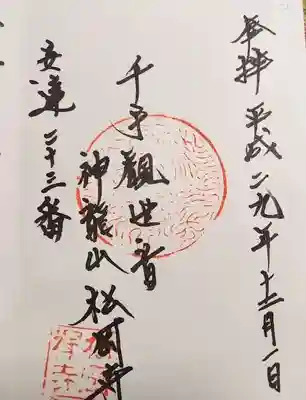 奉拝 平成二九年十二月一日
千手觀世音
神龍山 松岡寺
安達二十三番